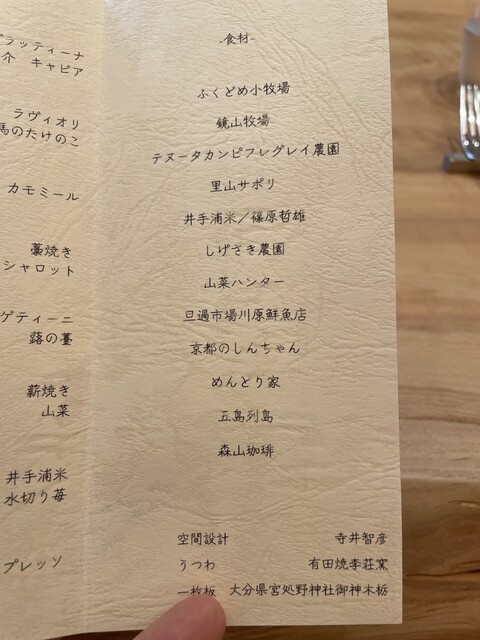 ブラッティーナ
介 キャビア
ラヴィオリ
馬のたけのこ
カモミール
藁焼き
シャロット
ゲティーニ
蕗の薹
薪焼き
山菜
井手浦米
水切り苺
プレッソ
-食材-
ふくどめ小牧場
鏡山牧場
テヌータカンピフレグレイ農園
里山サポリ
井手浦米／篠原哲雄
しげさき農園
山菜ハンター
旦過市場川原鮮魚店
京都のしんちゃん
めんとり家
五島列島
森山珈琲
空間設計 寺井智彦
うつわ 有田焼李荘窯
一枚板 大分県宮処野神社御神木栃